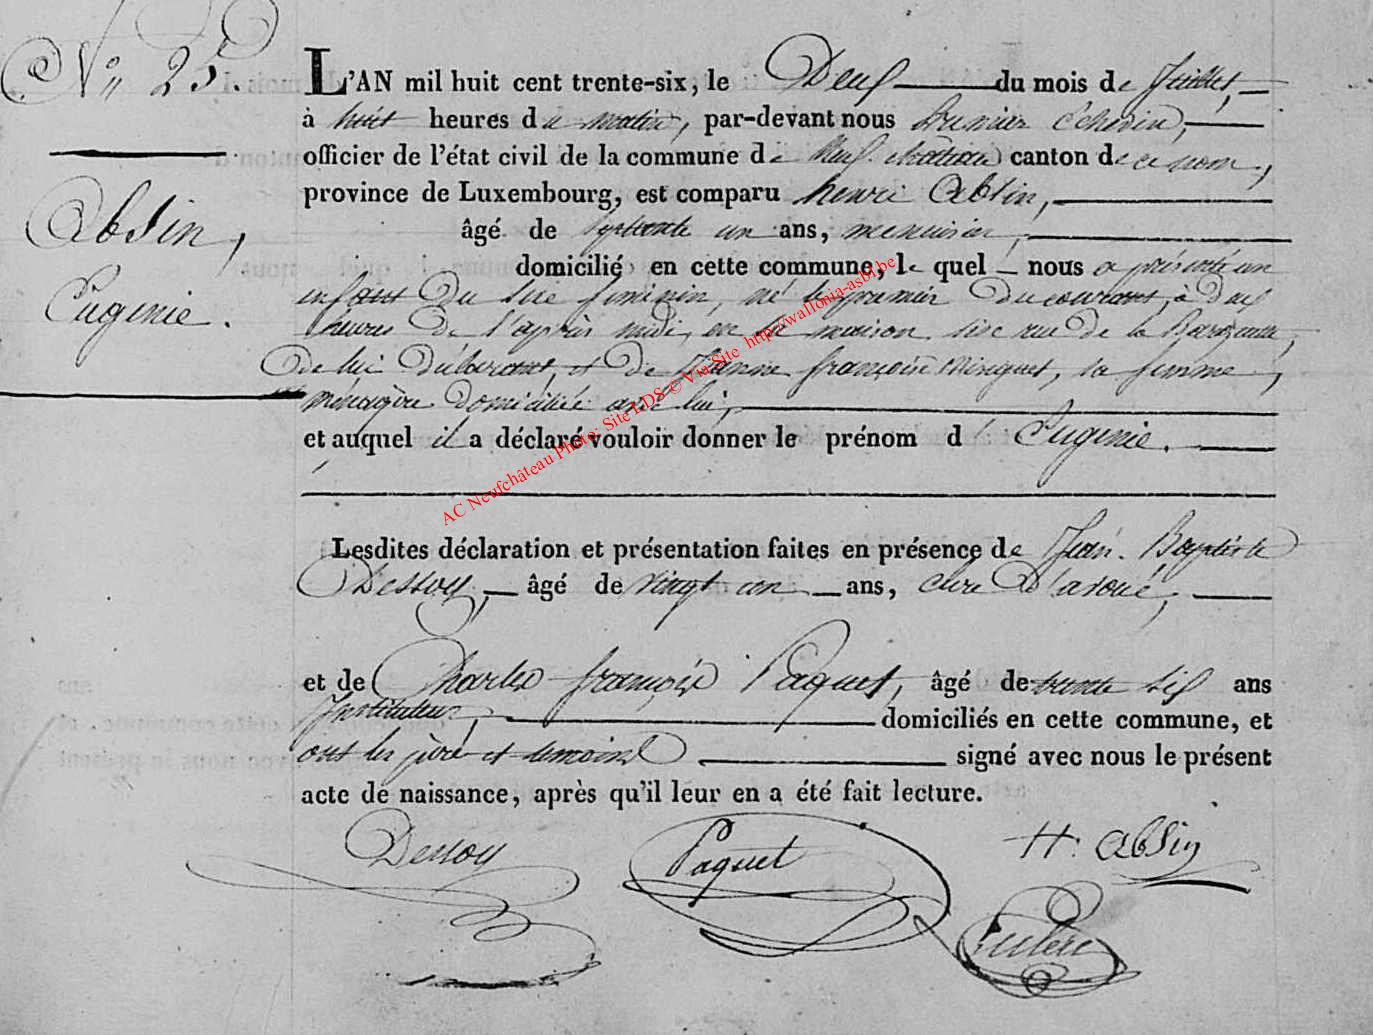 N° 25.
Absin,
Eugenie.
L'AN mil huit cent trente-six, le Deux du mois de Juillet,
à huit heures du matin, par-devant nous premier Echevin,
officier de l'état civil de la commune de Neufchateau canton de ce nom,
province de Luxembourg, est comparu henri Absin,
âgé de un ans, menuisier,
domicilié en cette commune, le quel nous a présenté un
enfant du sexe feminin, né le premier du courant, à deux
heures de l'après midi, en sa maison sise rue de la
de lui déclarant, et de Jeanne françoise sa femme,
ménagère domiciliée avec lui,
et auquel il a déclaré vouloir donner le prénom d' Eugenie.
Lesdites déclaration et présentation faites en présence de Jean-Baptiste
Dessoy, âgé de vingt un ans, clerc d'avoué,
et de Charles françois Paquet, âgé de trente six ans
Instituteur, domiciliés en cette commune, et
ont les père et temoins signé avec nous le présent
acte de naissance, après qu'il leur en a été fait lecture.
Dessoy Paquet H. Absin
AC Neufchâteau Photo: Site LDS © Via Site http://wallonia-asbl.be